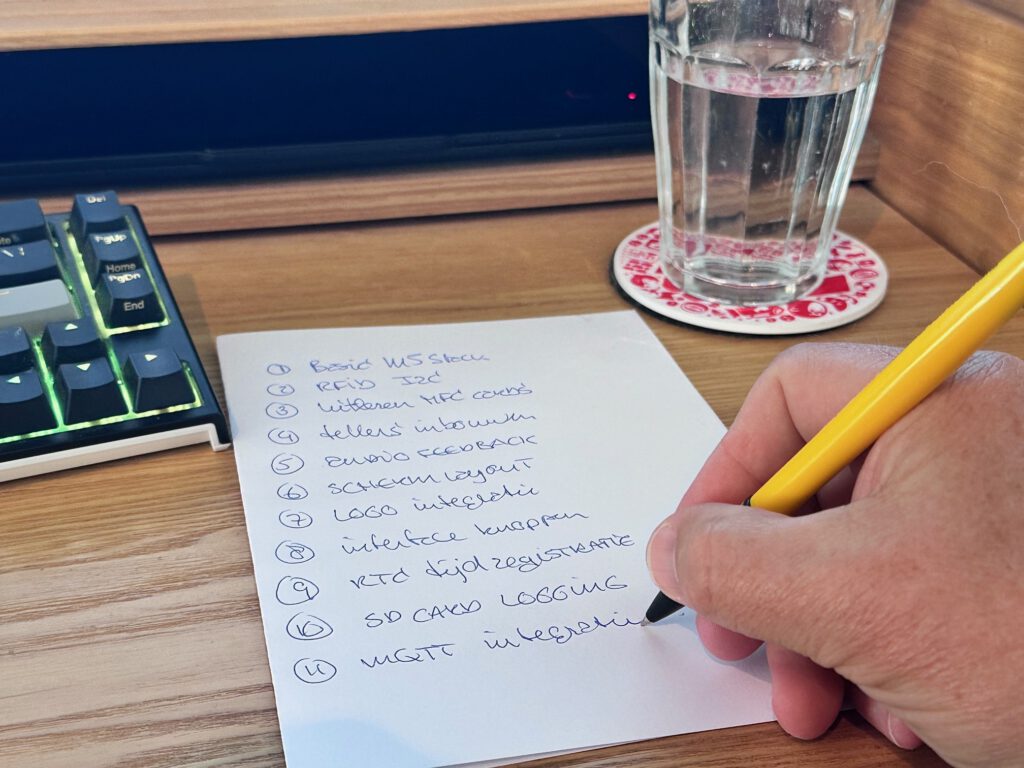 Del
PgUp
Home
PgDn
End
① Basic M5Stack
② RFID I2C
③ uitlezen NFC cards
④ tellers inbouwen
⑤ AUDIO FEEDBACK
⑥ SCHERM layout
⑦ LOGO integratie
⑧ interface knoppen
⑨ RTC tijd registratie
⑩ SD CARD LOGGING
⑪ MQTT integratie